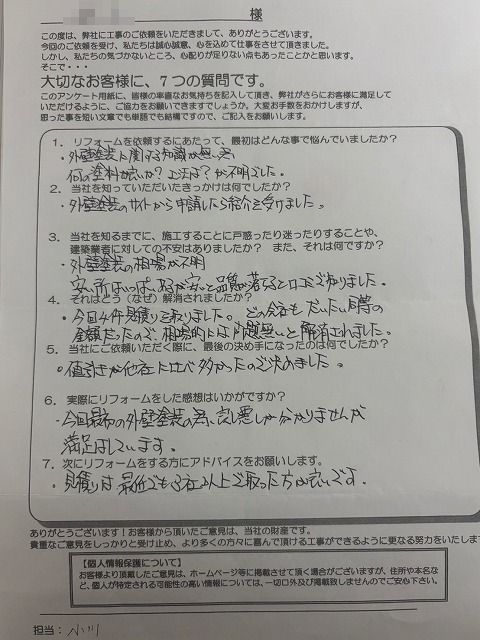 様
この度は、弊社に工事のご依頼をいただきまして、ありがとうございます。
今回のご依頼を受け、私たちは誠心誠意、心を込めて仕事をさせて頂きました。
しかし、私たちの気づかないところ、心配りが足りない点もあったことかと思います。
そこで・・・
大切なお客様に、7つの質問です。
このアンケート用紙に、皆様の率直なお気持ちを記入して頂き、弊社がさらにお客様に満足して
いただけるように、ご協力をお願いできますでしょうか。大変お手数をおかけしますが、
思った事を短い文章でも単語でも結構ですので、ご記入をお願いします。
1. リフォームを依頼するにあたって、最初はどんな事で悩んでいましたか？
・外壁塗装に関する知識が無い為
何の塗料が良いか？工法は？が不明でした。
2. 当社を知っていただいたきっかけは何でしたか？
・外壁塗装のサイトから申請したら紹介を受けました。
3. 当社を知るまでに、施工することに戸惑ったり迷ったりすることや、
建築業者に対しての不安はありましたか？ また、それは何ですか？
・外壁塗装の相場が不明
安い所はいっぱいあるが安いと品質が落ちると口コミで知りました。
4. それはどう（なぜ）解消されましたか？
・今回4件見積りを取りました。どの会社もだいたい同等の
金額だったので、相場的には問題無いと解消されました。
5. 当社にご依頼いただく際に、最後の決め手になったのは何でしたか？
・値引きが他社に比べ多かったので決めました。
6. 実際にリフォームをした感想はいかがですか？
・今回最初の外壁塗装の為、良し悪しが分かりませんが
満足はしています。
7. 次にリフォームをする方にアドバイスをお願いします。
・見積りは最低でも3社以上で取った方が良いです。
ありがとうございます！お客様から頂いたご意見は、当社の財産です。
貴重なご意見をしっかりと受け止め、より多くの方々に喜んで頂ける工事ができるように更なる努力をいたします
【個人情報保護について】
お客様より頂戴したご意見は、ホームページ等に掲載させて頂く場合がございますが、住所や本名な
ど、個人が特定される可能性の高い情報については、一切口外及び掲載致しませんのでご安心下さい。
担当：小川